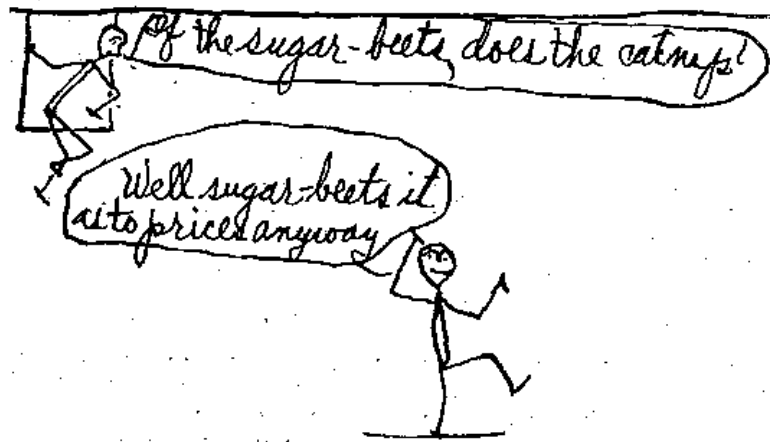 If the sugar-beets, does the catnip?
Well sugar-beets it
as to prices anyway